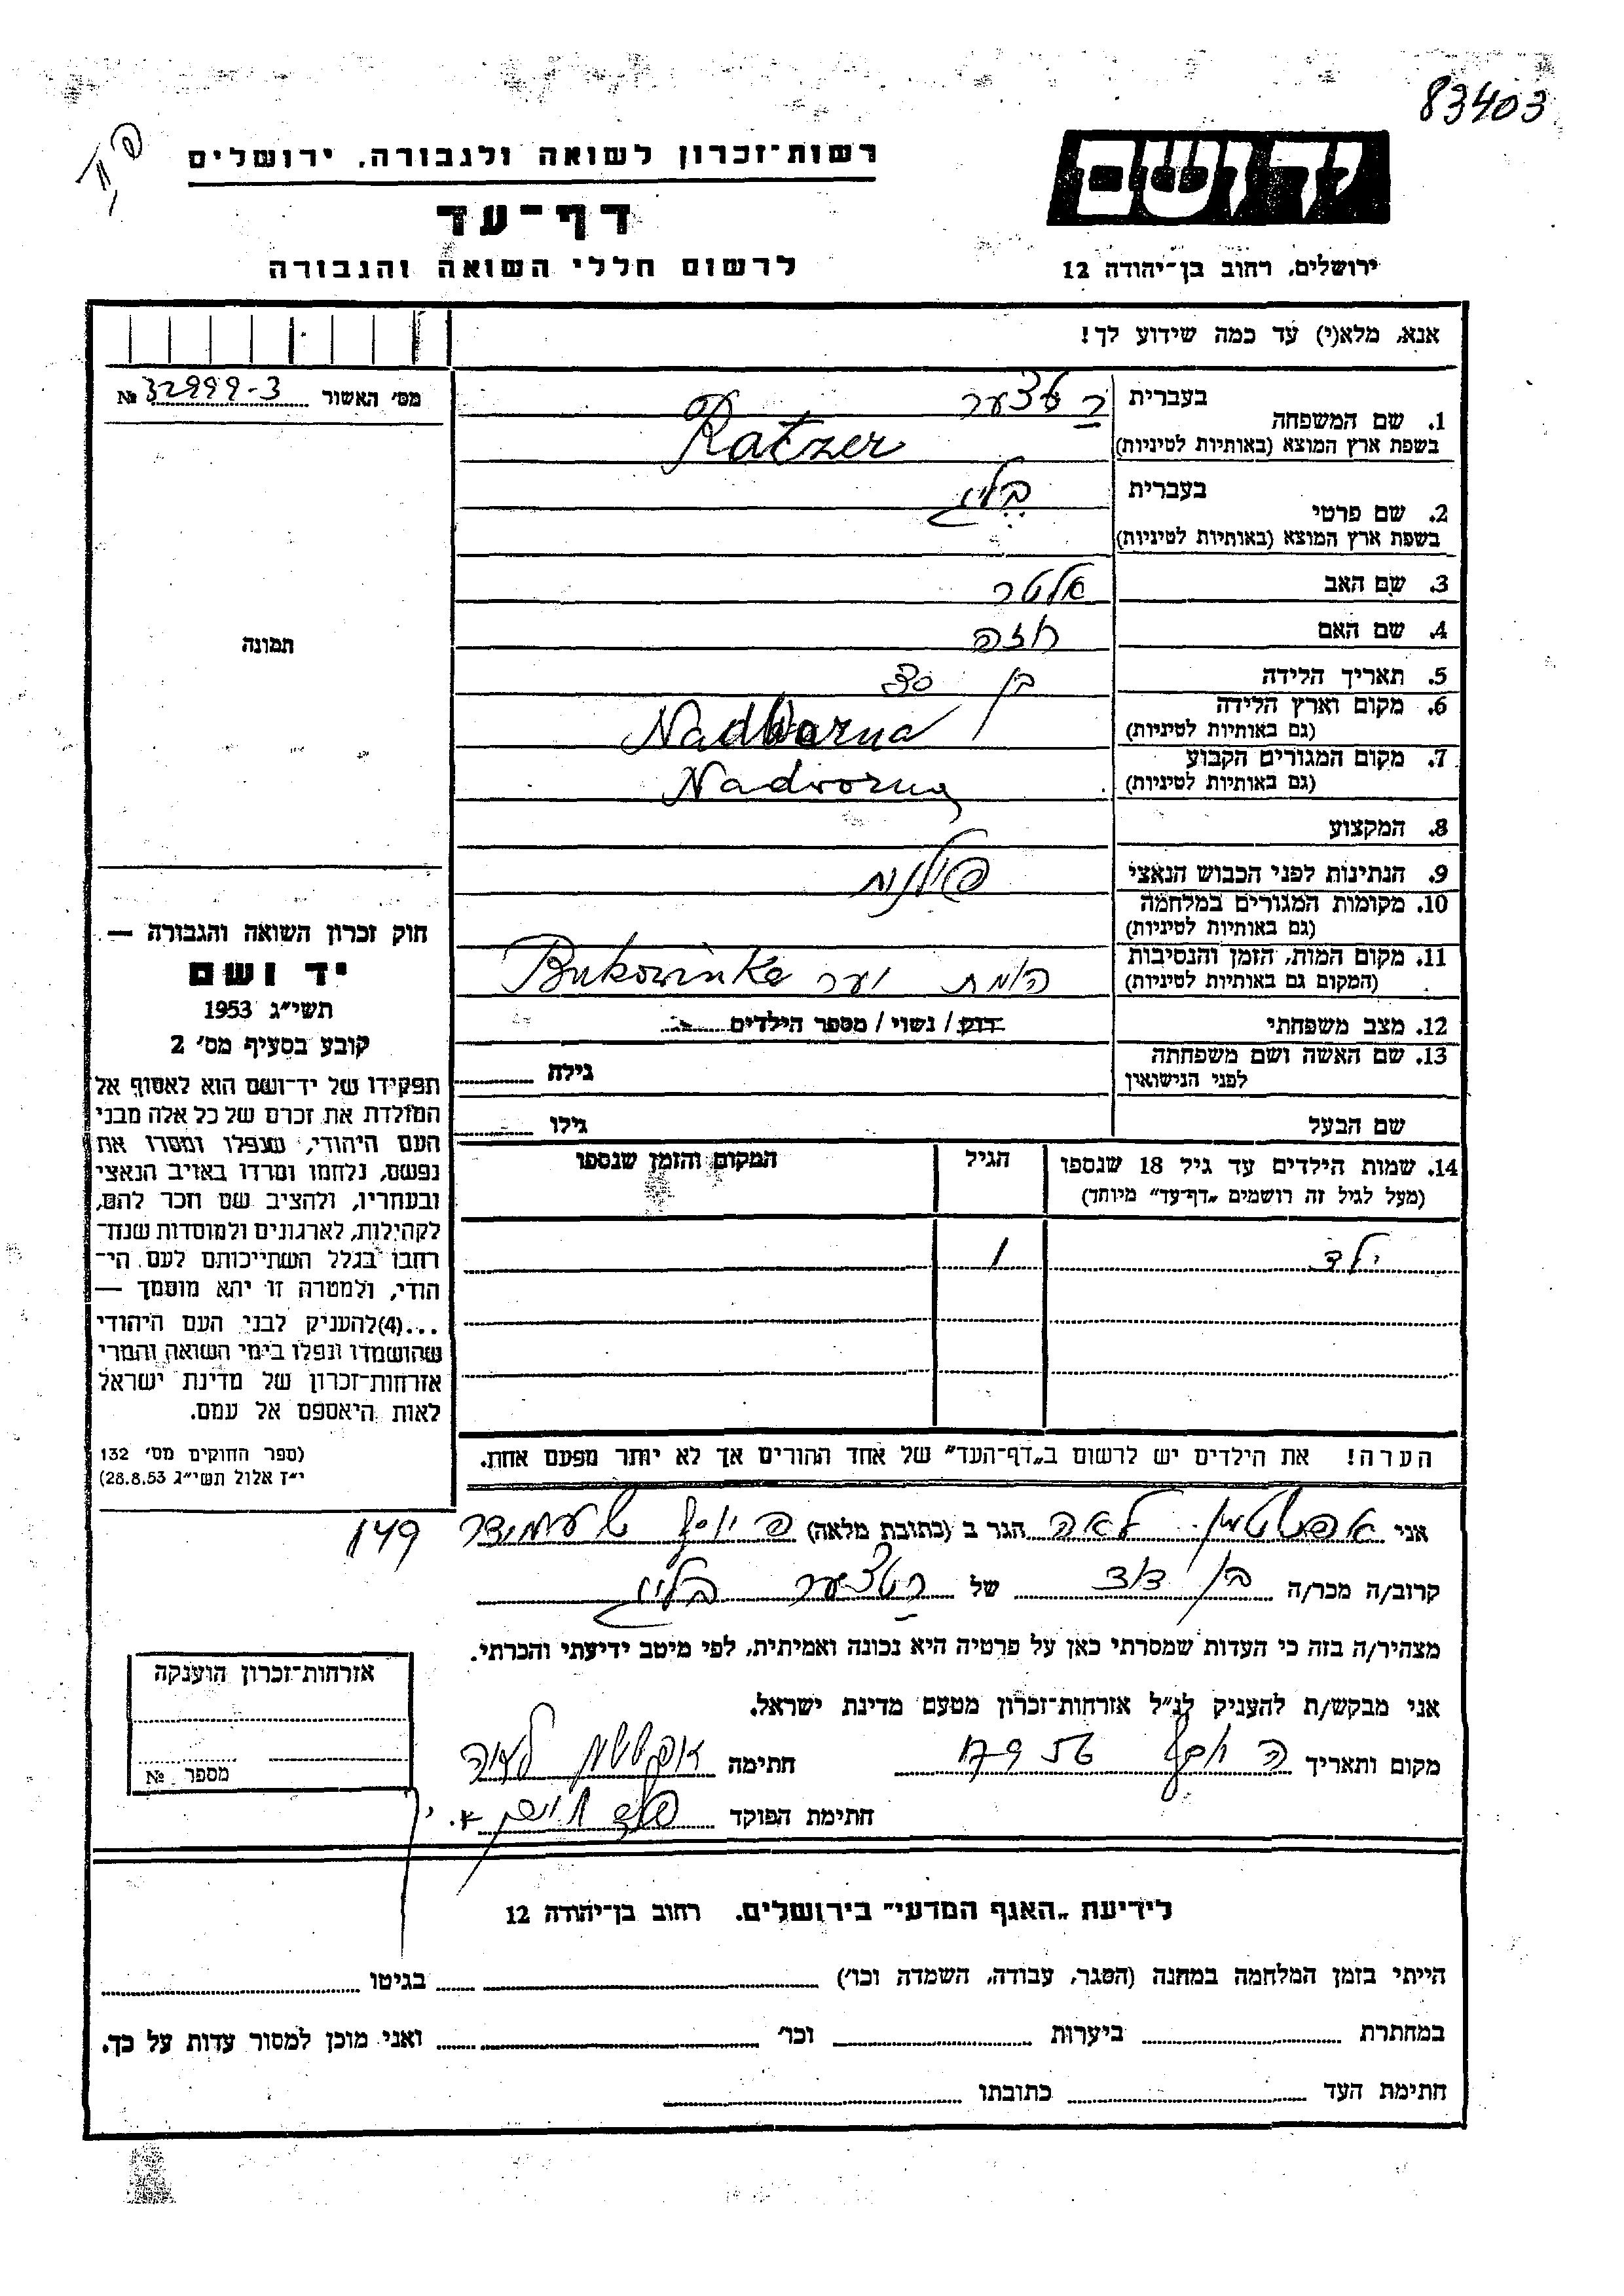 83403
יד ושם
רשות־זכרון לשואה ולגבורה, ירושלים
דף־עד
ירושלים, רחוב בן־יהודה 12
לרשום חללי השואה והגבורה
אנא, מלא(י) עד כמה שידוע לך!
מס׳ האשור № 32999-3
1. שם המשפחה
בעברית רטצער
בשפת ארץ המוצא (באותיות לטיניות) Ratzer
2. שם פרטי
בעברית
בשפת ארץ המוצא (באותיות לטיניות)
3. שם האב אלטר
4. שם האם
5. תאריך הלידה בן 30
6. מקום וארץ הלידה
(גם באותיות לטיניות) Nadworna
7. מקום המגורים הקבוע
(גם באותיות לטיניות) Nadvorna
8. המקצוע
9. הנתינות לפני הכבוש הנאצי פולנית
10. מקומות המגורים במלחמה
(גם באותיות לטיניות)
11. מקום המות, הזמן והנסיבות
(המקום גם באותיות לטיניות) הומת יער Bukowinke
12. מצב משפחתי רווק / נשוי / מספר הילדים
13. שם האשה ושם משפחתה
לפני הנישואין גילה
שם הבעל גילו
14. שמות הילדים עד גיל 18 שנספו
(מעל לגיל זה רושמים „דף־עד״ מיוחד)
הגיל
המקום והזמן שנספו
ילד 1
הערה! את הילדים יש לרשום ב„דף־העד״ של אחד ההורים אך לא יותר מפעם אחת.
תמונה
חוק זכרון השואה והגבורה —
יד ושם
תשי״ג 1953
קובע בסעיף מס׳ 2
תפקידו של יד־ושם הוא לאסוף אל
המולדת את זכרם של כל אלה מבני
העם היהודי, שנפלו ומסרו את
נפשם, נלחמו ומרדו באויב הנאצי
ובעוזריו, ולהציב שם וזכר להם,
לקהילות, לארגונים ולמוסדות שנח־
רבו בגלל השתייכותם לעם הי־
הודי, ולמטרה זו יהא מוסמך —
...(4) להעניק לבני העם היהודי
שהושמדו ונפלו בימי השואה והמרי
אזרחות־זכרון של מדינת ישראל
לאות היאספם אל עמם.
(ספר החוקים מס׳ 132
י״ז אלול תשי״ג 28.8.53)
אני אפשטמן לאה הגר ב (כתובת מלאה) 149
קרוב/ה מכר/ה בן דוד של רטצער
מצהיר/ה בזה כי העדות שמסרתי כאן על פרטיה היא נכונה ואמיתית, לפי מיטב ידיעתי והכרתי.
אני מבקש/ת להעניק לנ״ל אזרחות־זכרון מטעם מדינת ישראל.
מקום ותאריך חתימה
חתימת הפוקד
אזרחות־זכרון הוענקה
מספר №
לידיעת „האגף המדעי״ בירושלים, רחוב בן־יהודה 12
הייתי בזמן המלחמה במחנה (הסגר, עבודה, השמדה וכו׳) בגיטו
במחתרת ביערות וכו׳ ואני מוכן למסור עדות על כך.
חתימת העד כתובתו